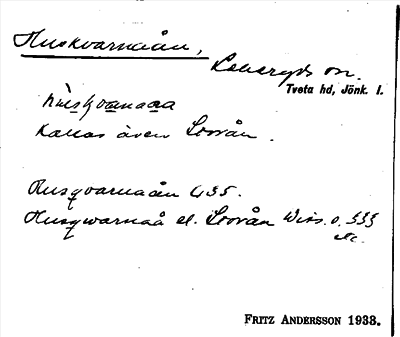 Huskvarnaån,
Lekeryds sn.
Tveta hd, Jönk. l.
hùskvanaåa
Kallas även Loovån.
Husqvarnaån G 35.
Husqwarnaå el. Loovån Wiss. o. 333
etc.
FRITZ ANDERSSON 1933.